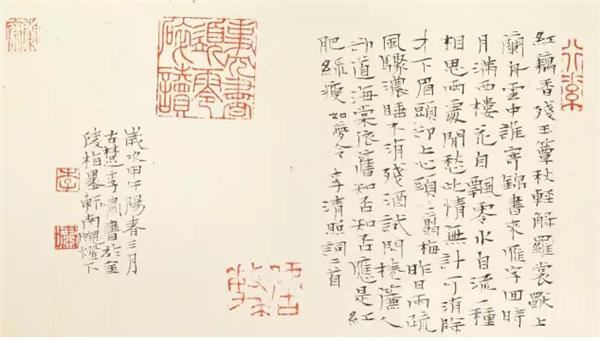 紅藕香殘玉簟秋輕解羅裳獨上
蘭舟雲中誰寄錦書來雁字回時
月滿西樓花自飄零水自流一種
相思兩處閒愁此情無計可消除
才下眉頭卻上心頭 一翦梅 昨日雨疏
風驟濃睡不消殘酒試問捲簾人
卻道海棠依舊知否知否應是紅
肥綠瘦 如夢令 李清照詞二首
歲次甲午陽春三月
古楚李肅書於金
陵指墨軒南窗燈下
李